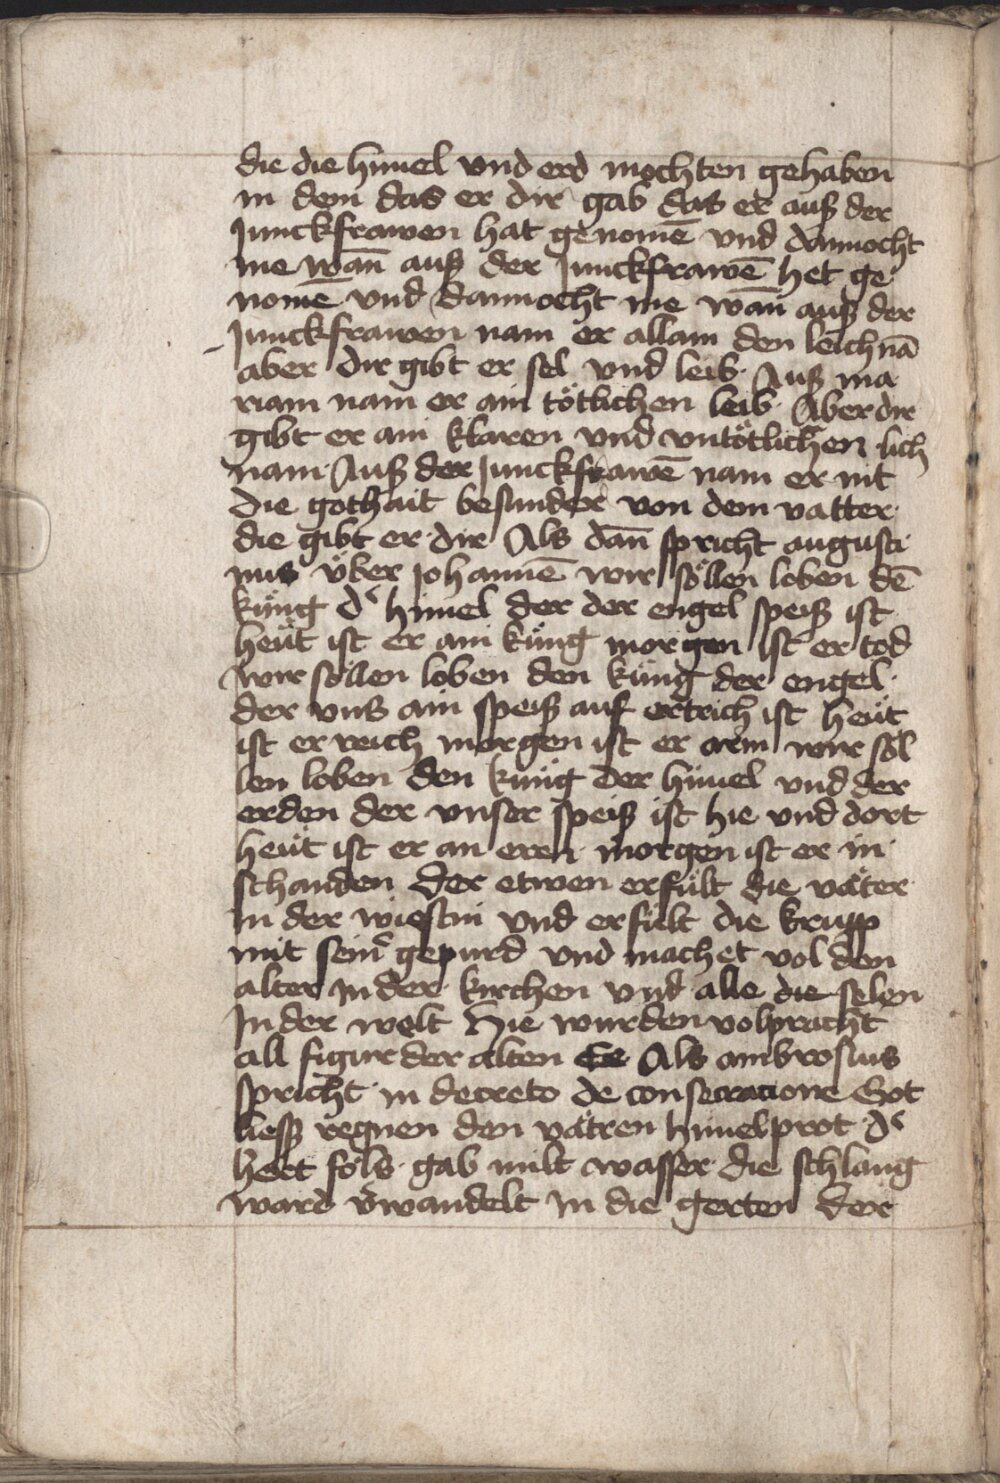 die die himel vnd erd mochten gehaben
in dem das er dir gab das er auß der
Junckfrawen hat genomē vnd dannocht
me wan̄ auß der Junckfrawē het ge
nomē vnd dannocht me wan̄ auß der
Junckfrawen nam er allain den leichnā
aber dir gibt er sel vnd leib· Auß ma
riam nam er ain tötlichen leib· Aber dir
gibt er ain klaren vnd vntötlichen lich
nam· Auß der Junckfrawē nam er nit
die gothait besunder von dem vatter·
die gibt er dir Als dan̄ spricht augusti
nus v̈ber Johannē wir söllen loben dē
küng d' himel der der engel speiß ist
heüt ist er ain küng morgen ist er tod
wir söllen loben den küng der engel·
der vns ain speiß auf ertrich ist heüt
ist er reich morgen ist er arm wir söl
len loben den küng der himel vnd der
erden der vnser speiß ist hie vnd dort
heüt ist er an eren morgen ist er in
schanden der etwen erfült die väter
in der wiestin vnd erfült die krupp
mit sein' gepurd vnd machet vol den
alter in der kirchen vnd alle die selen
In der welt Hie wurden volpracht
all figur der alten Ee Als ambrosius
spricht in decreto de consecracione Got
liess regnen den vätren himelprot d'
hert föls gab milt wasser die schlang
ward v'wandelt in die gerten der